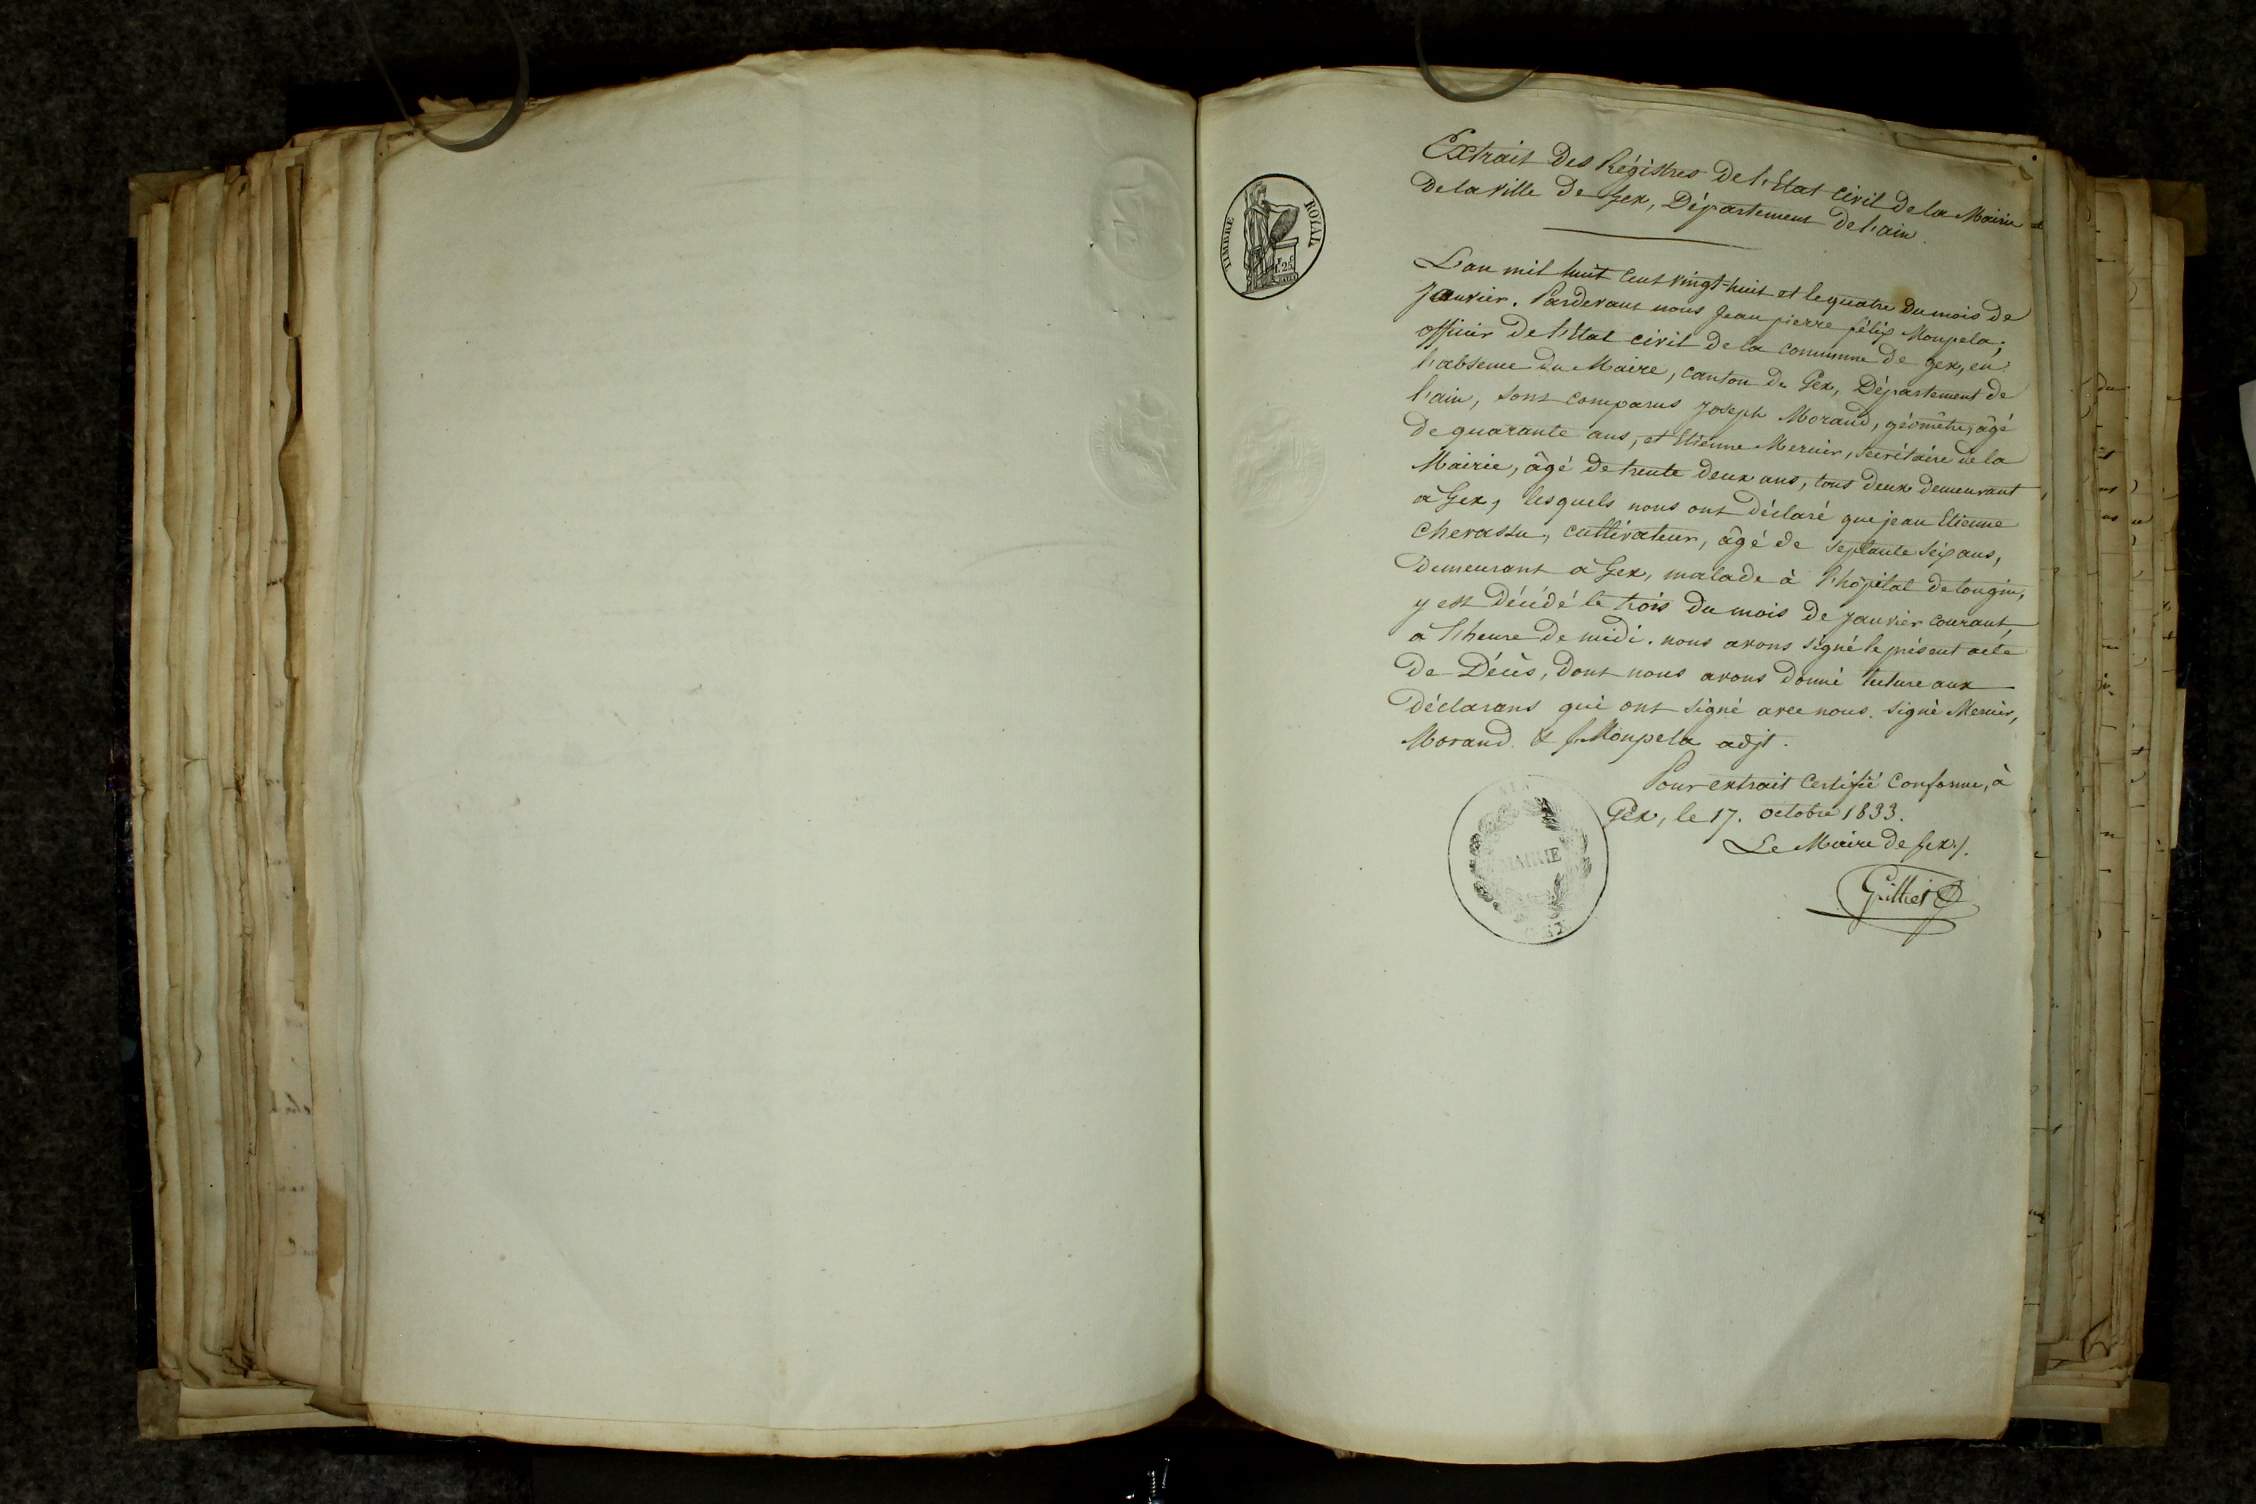 Extrait Des Régistres De l'Etat Civil De la Mairie
De la ville De Gex, Département De l'ain.
TIMBRE ROYAL
L'an mil huit Cent vingt-huit et le quatre Du mois De
Janvier. Pardevant nous Jean pierre félix Monpela,
officier De l'Etat civil De la commune De Gex, en
l'absence Du Maire, canton De Gex, Département De
l'ain, sont comparus Joseph Morand, géomêtre, âgé
De quarante ans, et Etienne Mercier, secrétaire de la
Mairie, âgé De trente Deux ans, tous Deux Demeurant
à Gex, lesquels nous ont Déclaré que jean Etienne
Chevassu, cultivateur, âgé De septante six ans,
Demeurant à Gex, malade à l'hôpital De tougin,
y est Décédé le trois Du mois De Janvier courant,
à l'heure De midi. nous avons signé le présent acte
De Décès, Dont nous avons Donné lecture aux
Déclarans qui ont signé avec nous. signé Mercier,
Morand & f. Monpela adjt.
Pour extrait Certifié Conforme, à
Gex, le 17. octobre 1833.
Le Maire De Gex /.
MAIRIE
GEX